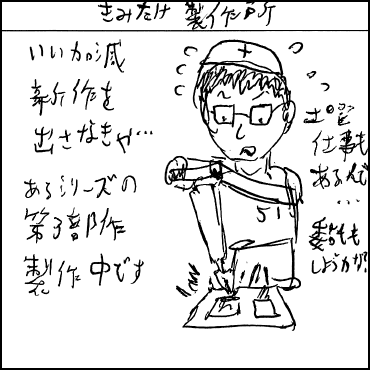 きみたけ 製作所
いい加減
新作を
出さなきゃ…
あるシリーズの
第3部作
製作中です
仕事も
あるんで
…
委託も
しようかな?
51